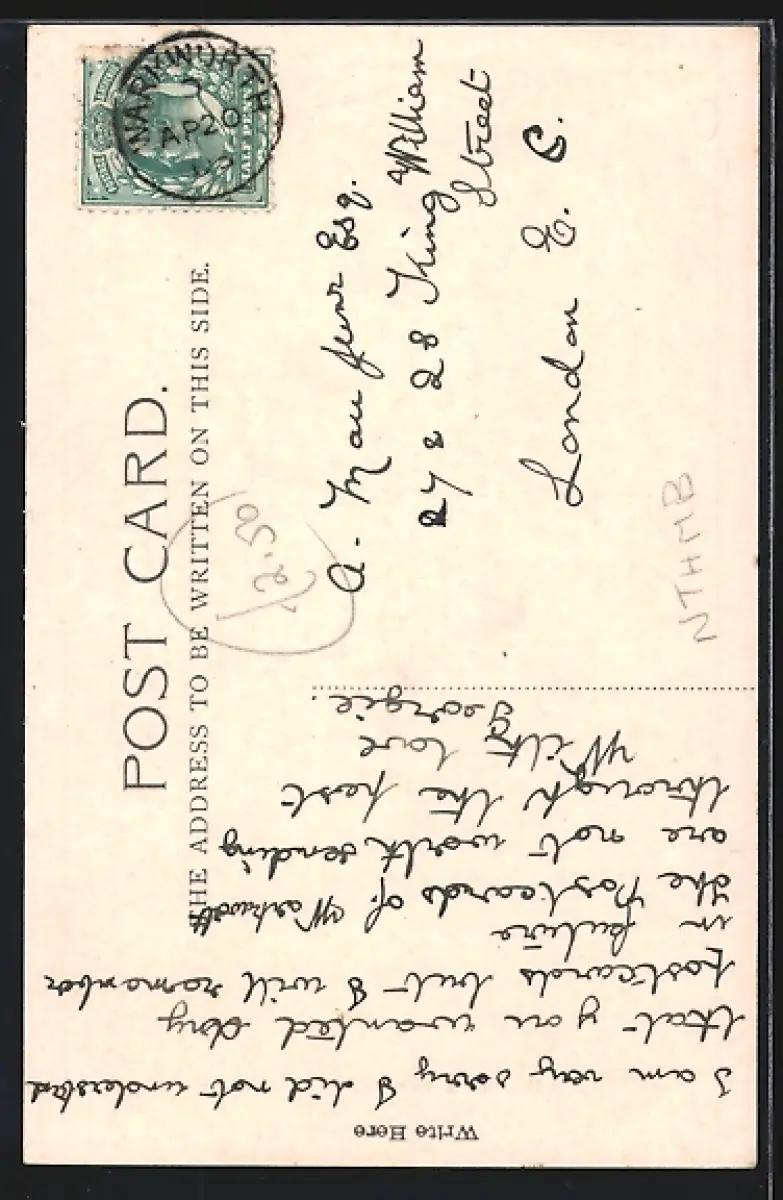 POST CARD.
THE ADDRESS TO BE WRITTEN ON THIS SIDE.
WARKWORTH
AP 20
HALF PENNY
A. Esq.
27 & 28 King William
Street
London E. C.
12.50
NTHMB
Write Here
I am very sorry I did not understand
that you wanted
postcards but I will remember
in future
the Postcards of Warkworth
are not worth sending
through the post
With love
Georgie.